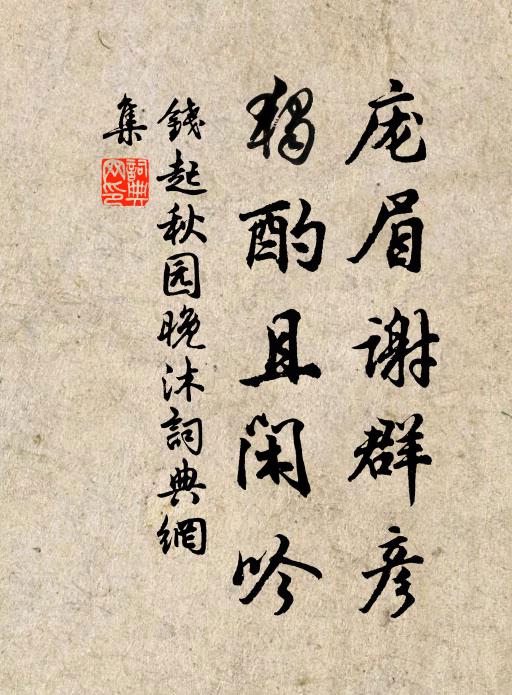 庞眉谢群彦
独酌且闲吟
錢起秋园晚沐詞典網
集
詞典網印